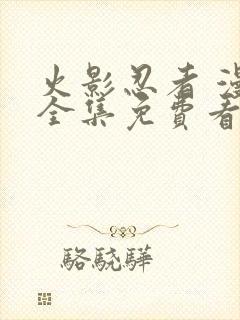 火影忍者 漫
全集免費看
駱驍驊